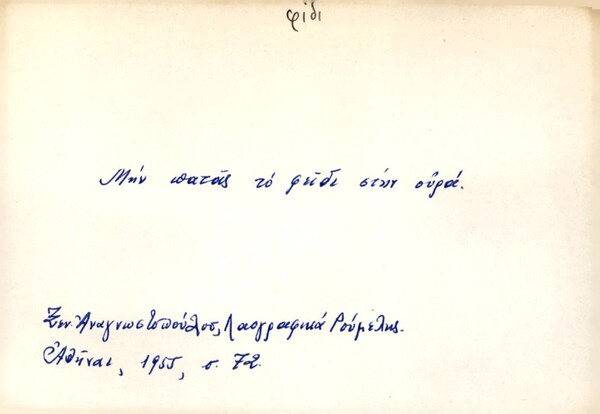 φίδι
Μήν πατᾶς τό φεῖδι στήν οὐρά.
Ξεν. Ἀναγνωστοπούλου, Λαογραφικά Ρούμελης.
Ἀθῆναι, 1955, σ. 72.